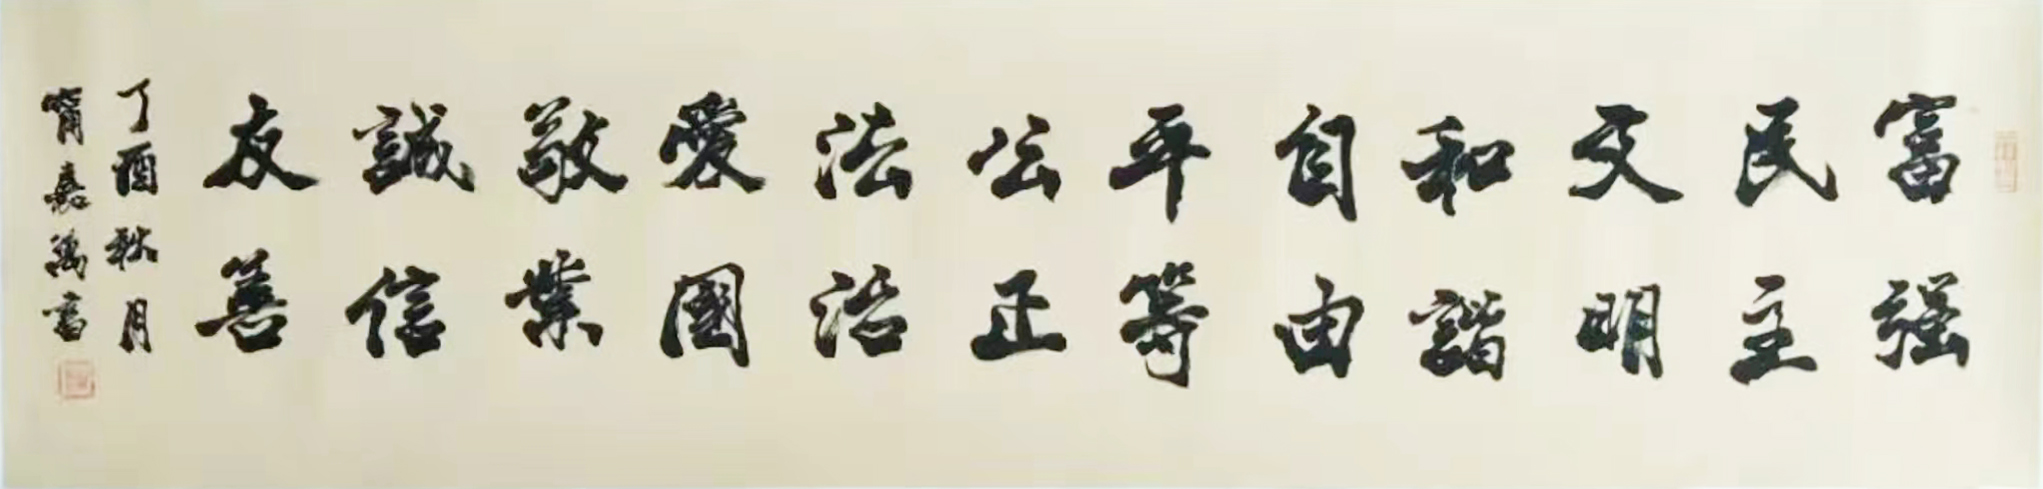 富强
民主
文明
和諧
自由
平等
公正
法治
愛國
敬業
誠信
友善
丁酉秋月
甯嘉萬書